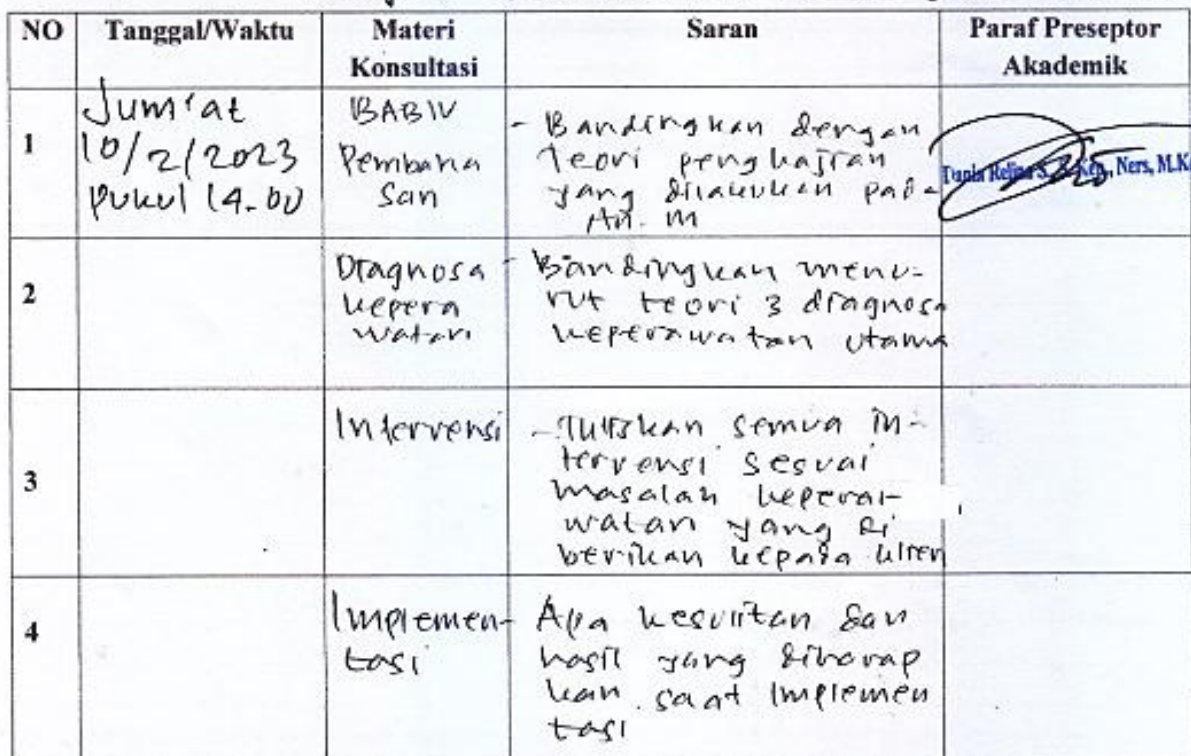 NO Tanggal/Waktu Materi Konsultasi Saran Paraf Preseptor Akademik
1
Jum'at
10/2/2023
pukul 14.00
BAB IV
Pembaha
san
- Bandingkan dengan
teori pengkajian
yang dilakukan pada
An. M
Ners, M.K
2
Diagnosa
kepera
watan
- Bandingkan menu-
rut teori 3 diagnosa
keperawatan utama
3
Intervensi
- Tuliskan semua in-
tervensi sesuai
masalah keperai-
watan yang di
berikan kepada klien
4
Implemen-
tasi
Apa kesulitan dan
hasil yang diharap
kan saat implemen
tasi